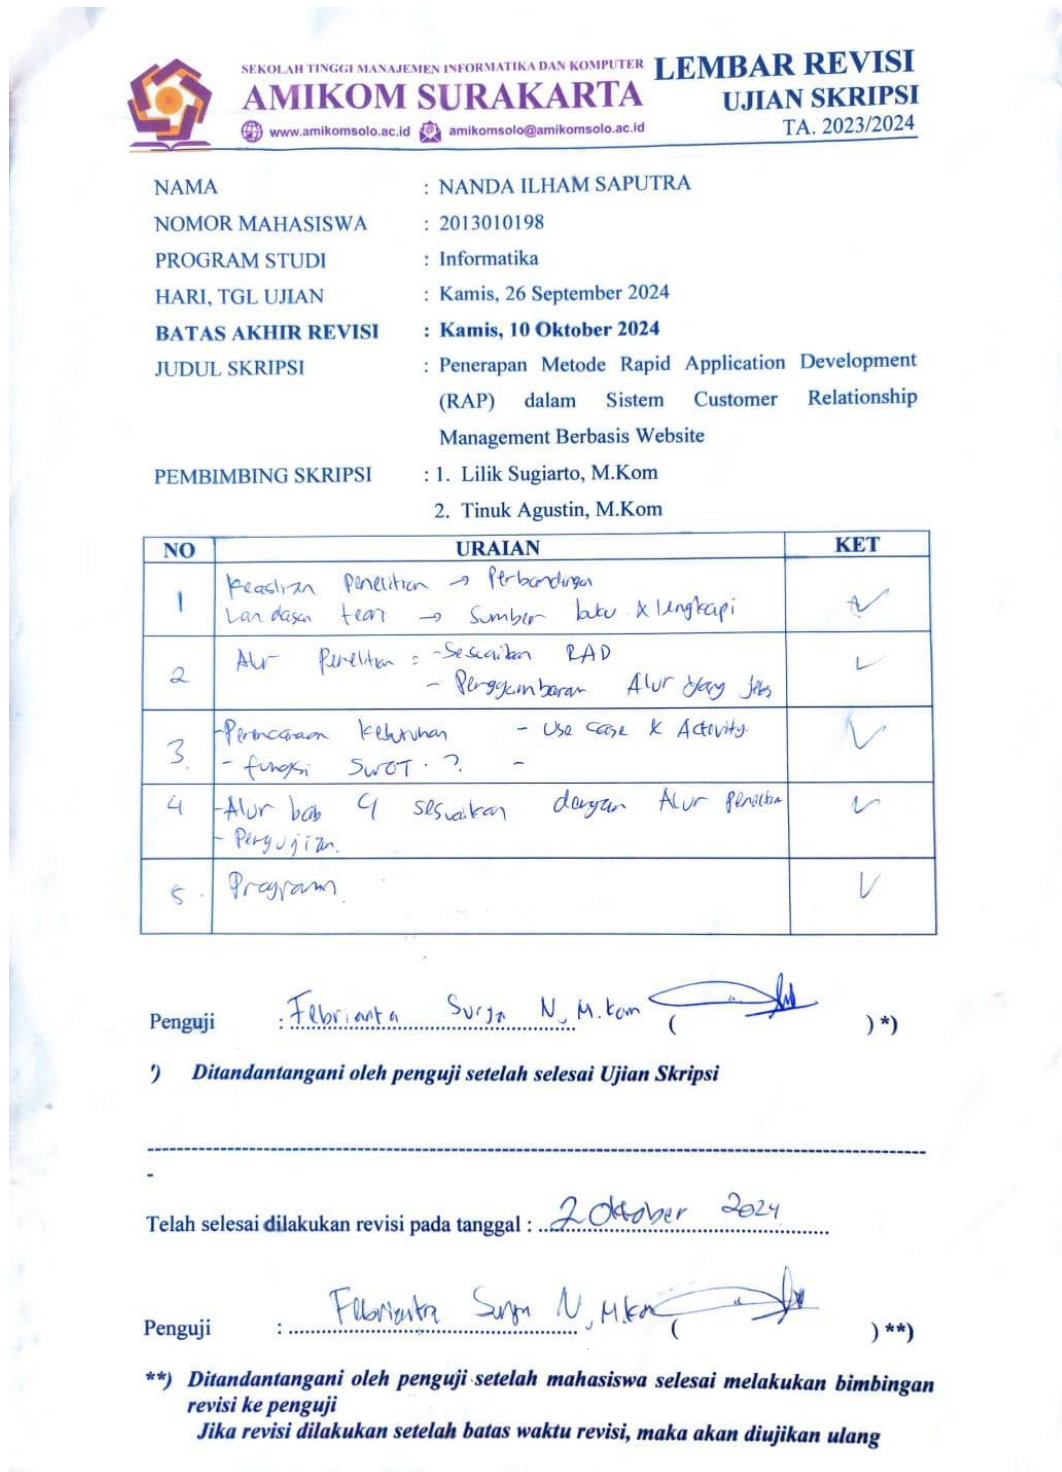 SEKOLAH TINGGI MANAJEMEN INFORMATIKA DAN KOMPUTER
AMIKOM SURAKARTA
www.amikomsolo.ac.id amikomsolo@amikomsolo.ac.id
LEMBAR REVISI
UJIAN SKRIPSI
TA. 2023/2024
NAMA : NANDA ILHAM SAPUTRA
NOMOR MAHASISWA : 2013010198
PROGRAM STUDI : Informatika
HARI, TGL UJIAN : Kamis, 26 September 2024
BATAS AKHIR REVISI : Kamis, 10 Oktober 2024
JUDUL SKRIPSI : Penerapan Metode Rapid Application Development
(RAP) dalam Sistem Customer Relationship
Management Berbasis Website
PEMBIMBING SKRIPSI : 1. Lilik Sugiarto, M.Kom
2. Tinuk Agustin, M.Kom
NO URAIAN KET
1 Keaslian Penelitian → Perbandingan
Landasan teori → Sumber buku & lengkapi
2 Alur Penelitian : - Sesuaikan RAD
- Penggambaran Alur yang jelas
3. - Perencanaan kebutuhan - Use case & Activity.
- fungsi SWOT. ? -
4 - Alur bab 4 sesuaikan dengan Alur Penelitian
- Pengujian.
5. Program.
Penguji : Febrianta Surya N, M.Kom ( ) *)
*) Ditandantangani oleh penguji setelah selesai Ujian Skripsi
-
Telah selesai dilakukan revisi pada tanggal : 2 Oktober 2024
Penguji : Febrianta Surya N, M.Kom ( ) **)
**) Ditandantangani oleh penguji setelah mahasiswa selesai melakukan bimbingan
revisi ke penguji
Jika revisi dilakukan setelah batas waktu revisi, maka akan diujikan ulang